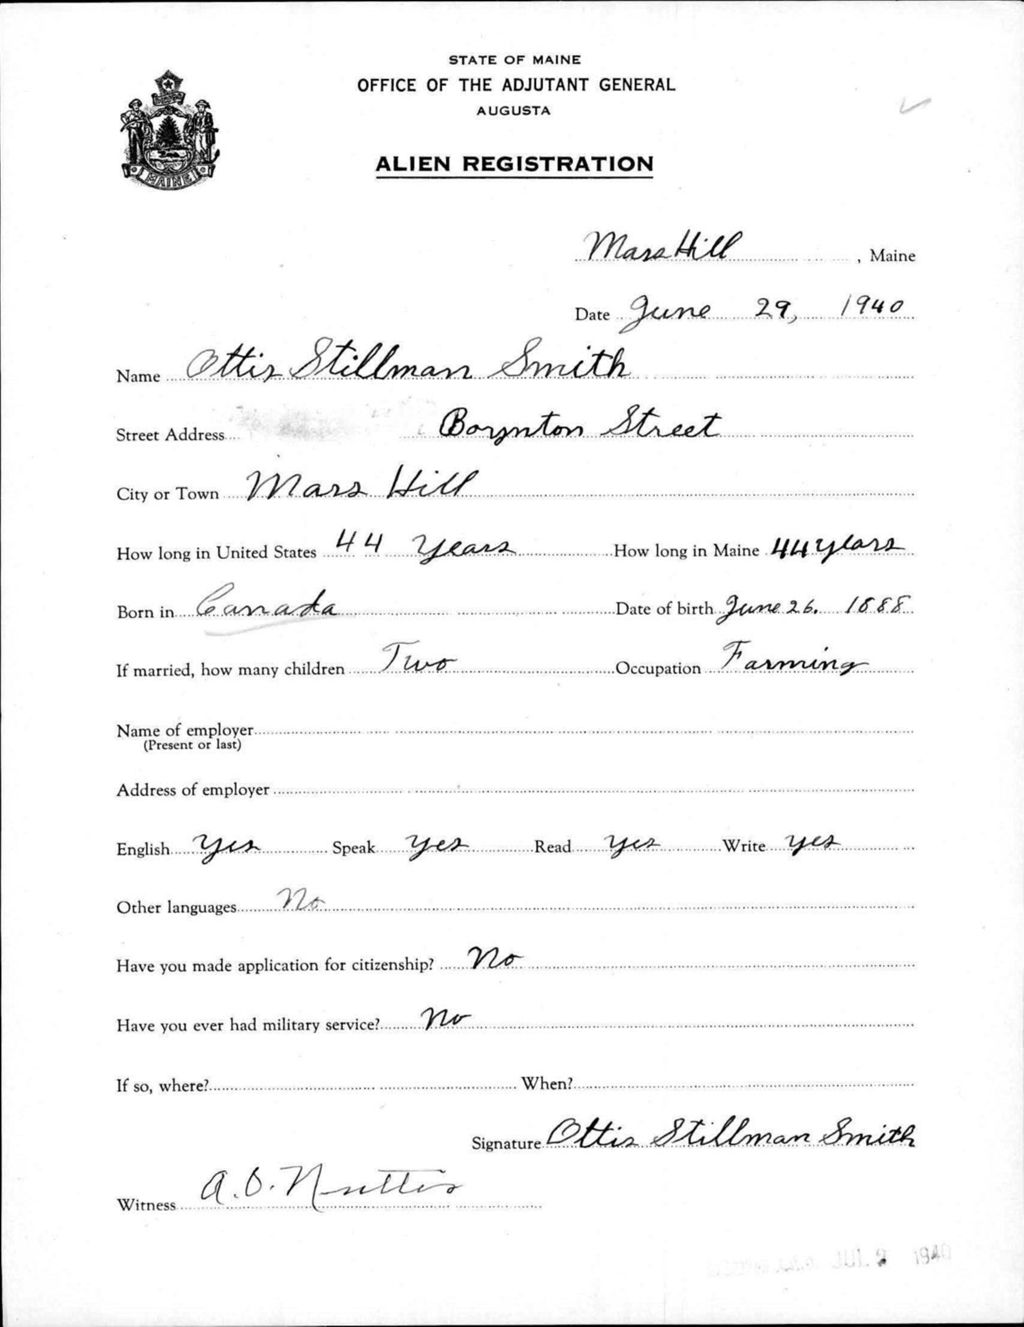 STATE OF MAINE
OFFICE OF THE ADJUTANT GENERAL
AUGUSTA
ALIEN REGISTRATION
MAINE
Mars Hill, Maine
Date June 29, 1940
Name Ottis Stillman Smith
Street Address Boynton Street
City or Town Mars Hill
How long in United States 44 Years How long in Maine 44 years
Born in Canada Date of birth June 26. 1888
If married, how many children Two Occupation Farming
Name of employer
(Present or last)
Address of employer
English Yes Speak Yes Read Yes Write Yes
Other languages No
Have you made application for citizenship? No
Have you ever had military service? No
If so, where? When?
Signature Ottis Stillman Smith
Witness A.O. Nutter
JUL 2 1940